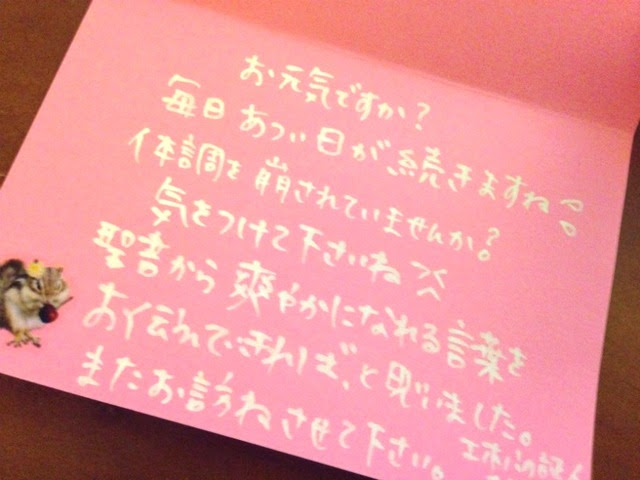 お元気ですか?
毎日 あつい日が、続きますね
体調を崩されていませんか?
気をつけて下さいね
聖書から爽やかになれる言葉を
お伝えできれば、と思いました。
またお訪ねさせて下さい。
エホバの証人